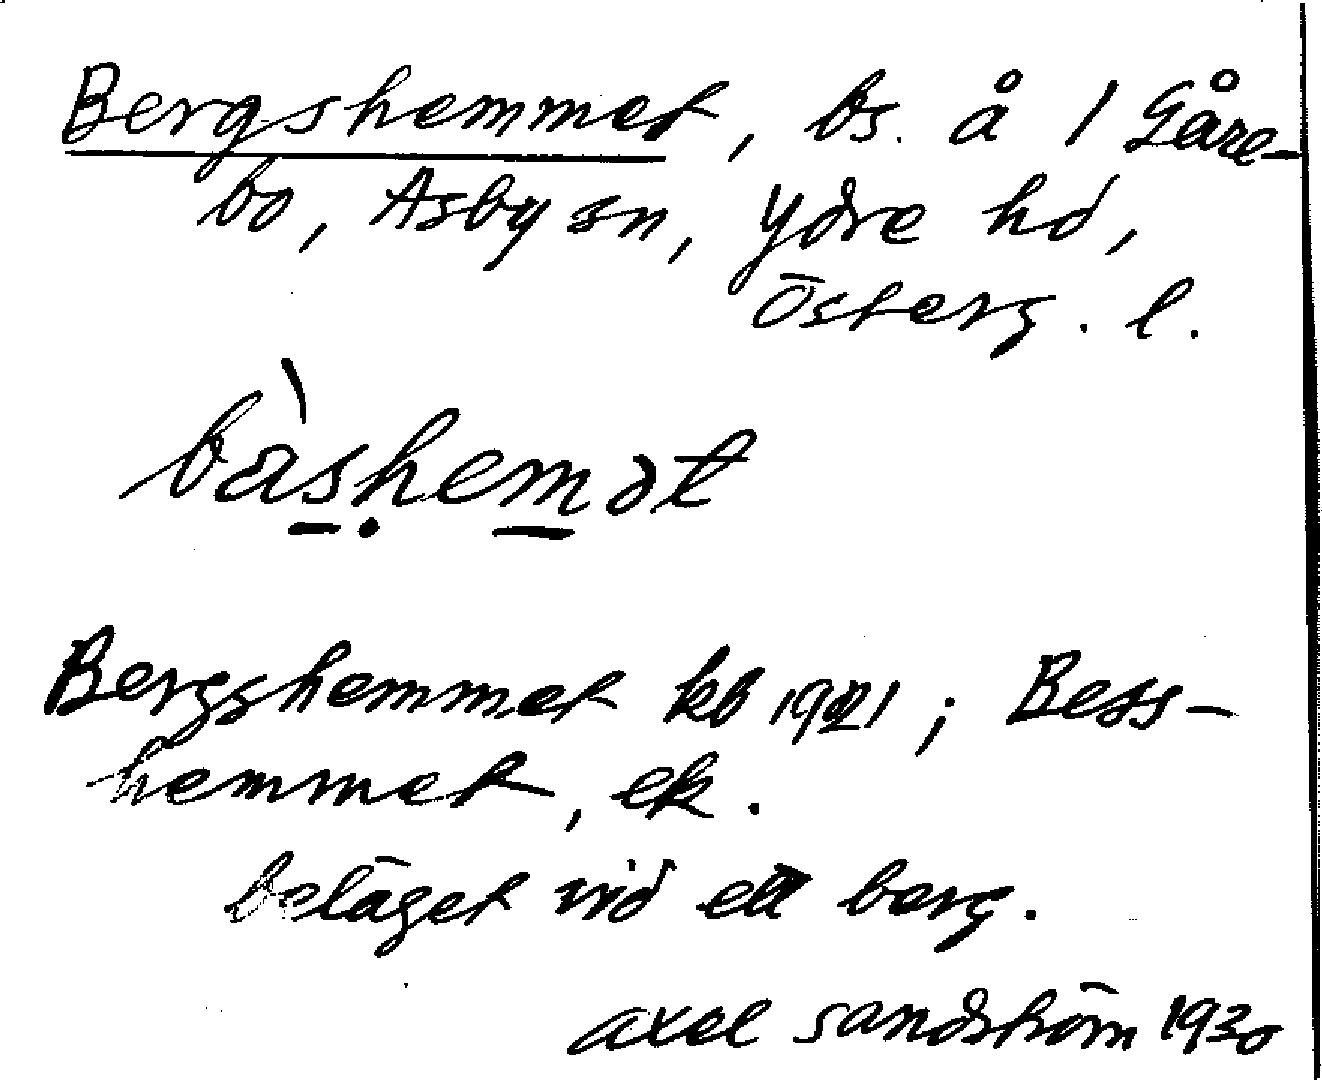 Bergshemmet, bs. å 1 Gåre-
bo, Asby sn, Ydre hd,
Österg. l.
bàs̠.hem̠ət
Bergshemmet kb 1921; Bess-
hemmet, ek.
beläget vid ett berg.
axel sandström 1930